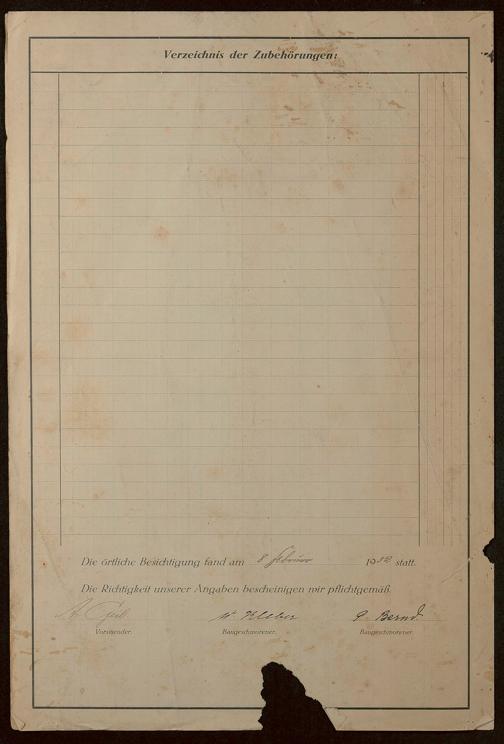 Verzeichnis der Zubehörungen:
Die örtliche Besichtigung fand am 8 Februar 1932 statt.
Die Richtigkeit unserer Angaben bescheinigen wir pflichtgemäß.
W. Kleber P Bernd
Vorsitzender. Baugeschworener. Baugeschworener.